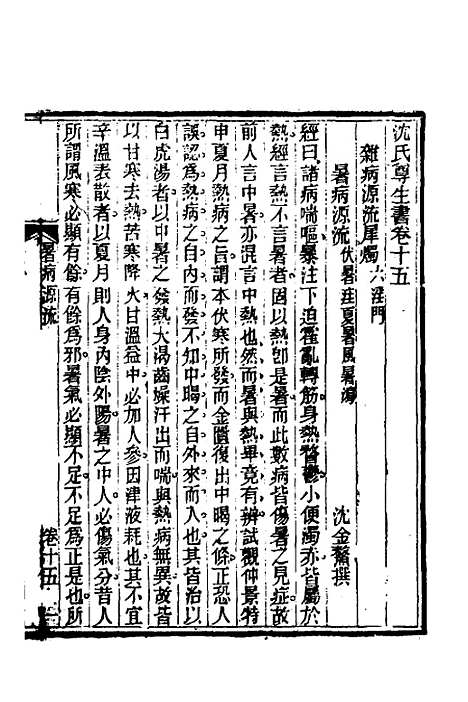 沈氏尊生書卷十五
雜病源流犀燭 六淫門
沈金鰲撰
暑病源流 伏暑 疰夏 暑風 暑瘍
經曰諸病喘嘔暴注下迫霍亂轉筋身熱瞀鬱小便濁亦皆屬於
熱經言熱不言暑者固以熱卽是暑而此數病皆傷暑之見症故
前人言中暑亦混言中熱也然而暑與熱畢竟有辨試觀仲景特
申夏月熱病之旨謂本伏寒所發而金匱復出中暍之條正恐人
誤認爲熱病之自內而發不知中暍之自外來而入也其皆治以
白虎湯者以中暑之發熱大渴齒燥汗出而喘與熱病無異故皆
以甘寒去熱苦寒降火甘溫益中必加人參因津液耗也其不宜
辛溫表散者以夏月則人身內陰外陽暑之中人必傷氣分昔人
所謂風寒必顯有餘有餘爲邪暑氣必顯不足不足爲正是也所
暑病源流
卷十五